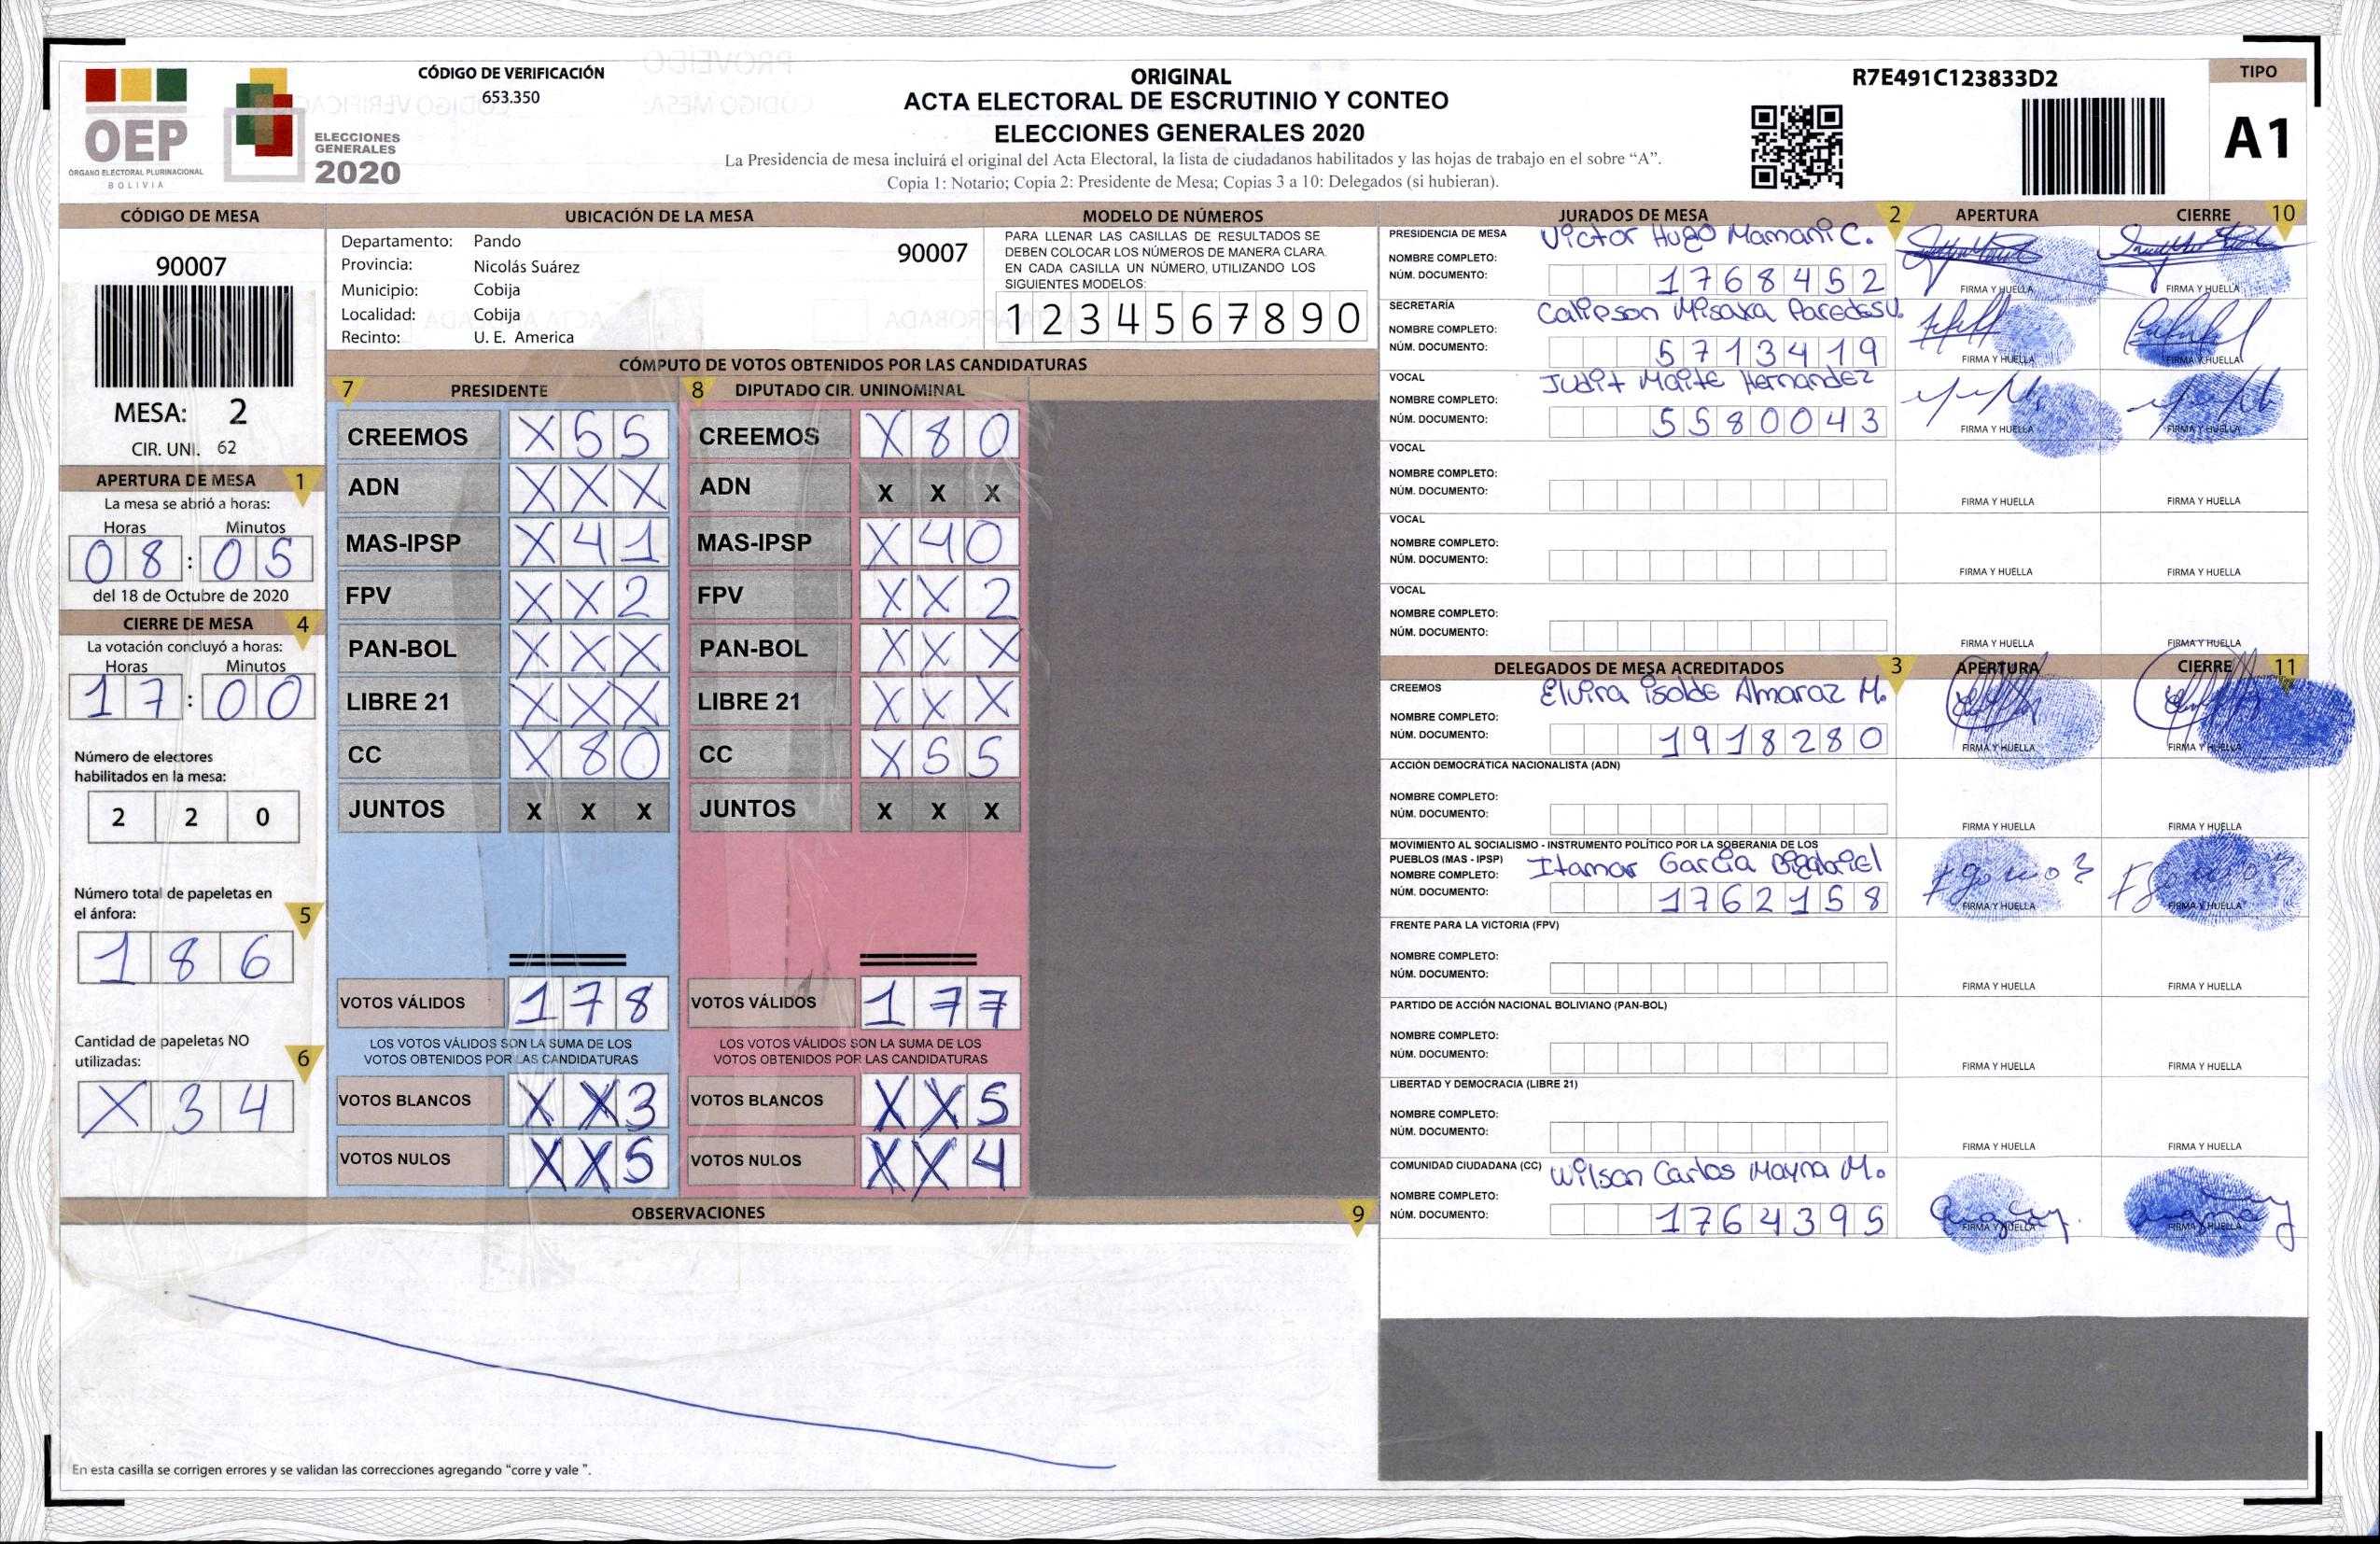 OEP
ÓRGANO ELECTORAL PLURINACIONAL
BOLIVIA
ELECCIONES
GENERALES
2020
CÓDIGO DE VERIFICACIÓN
653.350
ORIGINAL
ACTA ELECTORAL DE ESCRUTINIO Y CONTEO
ELECCIONES GENERALES 2020
La Presidencia de mesa incluirá el original del Acta Electoral, la lista de ciudadanos habilitados y las hojas de trabajo en el sobre “A”.
Copia 1: Notario; Copia 2: Presidente de Mesa; Copias 3 a 10: Delegados (si hubieran).
R7E491C123833D2
TIPO
A1
CÓDIGO DE MESA
90007
MESA: 2
CIR. UNI. 62
APERTURA DE MESA 1
La mesa se abrió a horas:
Horas Minutos
08:05
del 18 de Octubre de 2020
CIERRE DE MESA 4
La votación concluyó a horas:
Horas Minutos
17:00
Número de electores
habilitados en la mesa:
2 2 0
Número total de papeletas en
el ánfora: 5
1 8 6
Cantidad de papeletas NO
utilizadas: 6
X 3 4
UBICACIÓN DE LA MESA
Departamento: Pando
90007
Provincia: Nicolás Suárez
Municipio: Cobija
Localidad: Cobija
Recinto: U. E. America
MODELO DE NÚMEROS
PARA LLENAR LAS CASILLAS DE RESULTADOS SE
DEBEN COLOCAR LOS NÚMEROS DE MANERA CLARA.
EN CADA CASILLA UN NÚMERO, UTILIZANDO LOS
SIGUIENTES MODELOS:
1 2 3 4 5 6 7 8 9 0
CÓMPUTO DE VOTOS OBTENIDOS POR LAS CANDIDATURAS
7 PRESIDENTE
CREEMOS X 5 5
ADN X X X
MAS-IPSP X 4 1
FPV X X 2
PAN-BOL X X X
LIBRE 21 X X X
CC X 8 0
JUNTOS X X X
VOTOS VÁLIDOS 1 7 8
LOS VOTOS VÁLIDOS SON LA SUMA DE LOS
VOTOS OBTENIDOS POR LAS CANDIDATURAS
VOTOS BLANCOS X X 3
VOTOS NULOS X X 5
8 DIPUTADO CIR. UNINOMINAL
CREEMOS X 8 0
ADN X X X
MAS-IPSP X 4 0
FPV X X 2
PAN-BOL X X X
LIBRE 21 X X X
CC X 5 5
JUNTOS X X X
VOTOS VÁLIDOS 1 7 7
LOS VOTOS VÁLIDOS SON LA SUMA DE LOS
VOTOS OBTENIDOS POR LAS CANDIDATURAS
VOTOS BLANCOS X X 5
VOTOS NULOS X X 4
OBSERVACIONES 9
En esta casilla se corrigen errores y se validan las correcciones agregando “corre y vale ”.
JURADOS DE MESA 2 APERTURA CIERRE 10
PRESIDENCIA DE MESA Victor Hugo Mamani C.
NOMBRE COMPLETO:
NÚM. DOCUMENTO: 1768452
FIRMA Y HUELLA FIRMA Y HUELLA
SECRETARÍA Calipson Misaxa Paredes U.
NOMBRE COMPLETO:
NÚM. DOCUMENTO: 5713419
FIRMA Y HUELLA FIRMA Y HUELLA
VOCAL Judit Maite Hernandez
NOMBRE COMPLETO:
NÚM. DOCUMENTO: 5580043
FIRMA Y HUELLA FIRMA Y HUELLA
VOCAL
NOMBRE COMPLETO:
NÚM. DOCUMENTO:
FIRMA Y HUELLA FIRMA Y HUELLA
VOCAL
NOMBRE COMPLETO:
NÚM. DOCUMENTO:
FIRMA Y HUELLA FIRMA Y HUELLA
VOCAL
NOMBRE COMPLETO:
NÚM. DOCUMENTO:
FIRMA Y HUELLA FIRMA Y HUELLA
DELEGADOS DE MESA ACREDITADOS 3 APERTURA CIERRE 11
CREEMOS Elvira isolde Almaraz M.
NOMBRE COMPLETO:
NÚM. DOCUMENTO: 1918280
FIRMA Y HUELLA FIRMA Y HUELLA
ACCIÓN DEMOCRÁTICA NACIONALISTA (ADN)
NOMBRE COMPLETO:
NÚM. DOCUMENTO:
FIRMA Y HUELLA FIRMA Y HUELLA
MOVIMIENTO AL SOCIALISMO - INSTRUMENTO POLÍTICO POR LA SOBERANIA DE LOS
PUEBLOS (MAS - IPSP) Itamar Garcia
NOMBRE COMPLETO:
NÚM. DOCUMENTO: 1762158
FIRMA Y HUELLA FIRMA Y HUELLA
FRENTE PARA LA VICTORIA (FPV)
NOMBRE COMPLETO:
NÚM. DOCUMENTO:
FIRMA Y HUELLA FIRMA Y HUELLA
PARTIDO DE ACCIÓN NACIONAL BOLIVIANO (PAN-BOL)
NOMBRE COMPLETO:
NÚM. DOCUMENTO:
FIRMA Y HUELLA FIRMA Y HUELLA
LIBERTAD Y DEMOCRACIA (LIBRE 21)
NOMBRE COMPLETO:
NÚM. DOCUMENTO:
FIRMA Y HUELLA FIRMA Y HUELLA
COMUNIDAD CIUDADANA (CC) Wilson Carlos Mayna M.
NOMBRE COMPLETO:
NÚM. DOCUMENTO: 1764395
FIRMA Y HUELLA FIRMA Y HUELLA